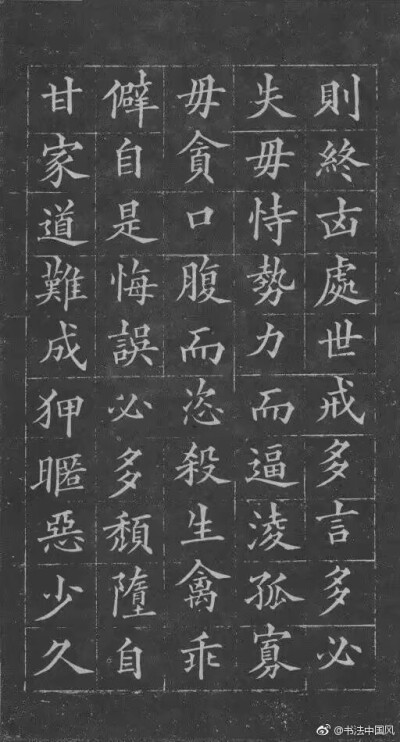 則終凶處世戒多言多必
失毋恃勢力而逼淩孤寡
毋貪口腹而恣殺生禽乖
僻自是悔誤必多頽墮自
甘家道難成狎暱惡少久
@书法中国风